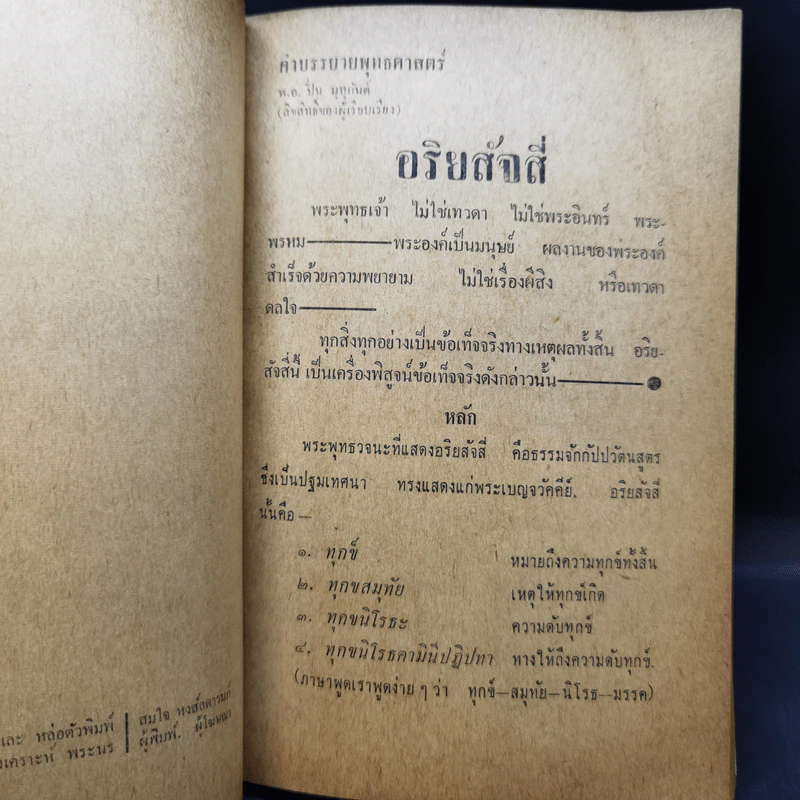 คำบรรยายพุทธศาสตร์
พ.อ. ปิ่น มุทุกันต์
(ลิขสิทธิ์ของผู้เรียบเรียง)
อริยสัจสี่
พระพุทธเจ้า ไม่ใช่เทวดา ไม่ใช่พระอินทร์ พระ-
พรหม———พระองค์เป็นมนุษย์ ผลงานของพระองค์
สำเร็จด้วยความพยายาม ไม่ใช่เรื่องผีสิง หรือเทวดา
ดลใจ———
ทุกสิ่งทุกอย่างเป็นข้อเท็จจริงทางเหตุผลทั้งสิ้น อริย-
สัจสี่นี้ เป็นเครื่องพิสูจน์ข้อเท็จจริงดังกล่าวนั้น———●
หลัก
พระพุทธวจนะที่แสดงอริยสัจสี่ คือธรรมจักกัปปวัตนสูตร
ซึ่งเป็นปฐมเทศนา ทรงแสดงแก่พระเบญจวัคคีย์. อริยสัจสี่
นั้นคือ—
๑. ทุกข์ หมายถึงความทุกข์ทั้งสิ้น
๒. ทุกขสมุทัย เหตุให้ทุกข์เกิด
๓. ทุกขนิโรธะ ความดับทุกข์
๔. ทุกขนิโรธคามินีปฏิปทา ทางให้ถึงความดับทุกข์.
(ภาษาพูดเราพูดง่าย ๆ ว่า ทุกข์—สมุทัย—นิโรธ—มรรค)
และ หล่อตัวพิมพ์
เคราะห์ พระนร
สมใจ หงส์ลดารมภ์
ผู้พิมพ์. ผู้โฆษณา